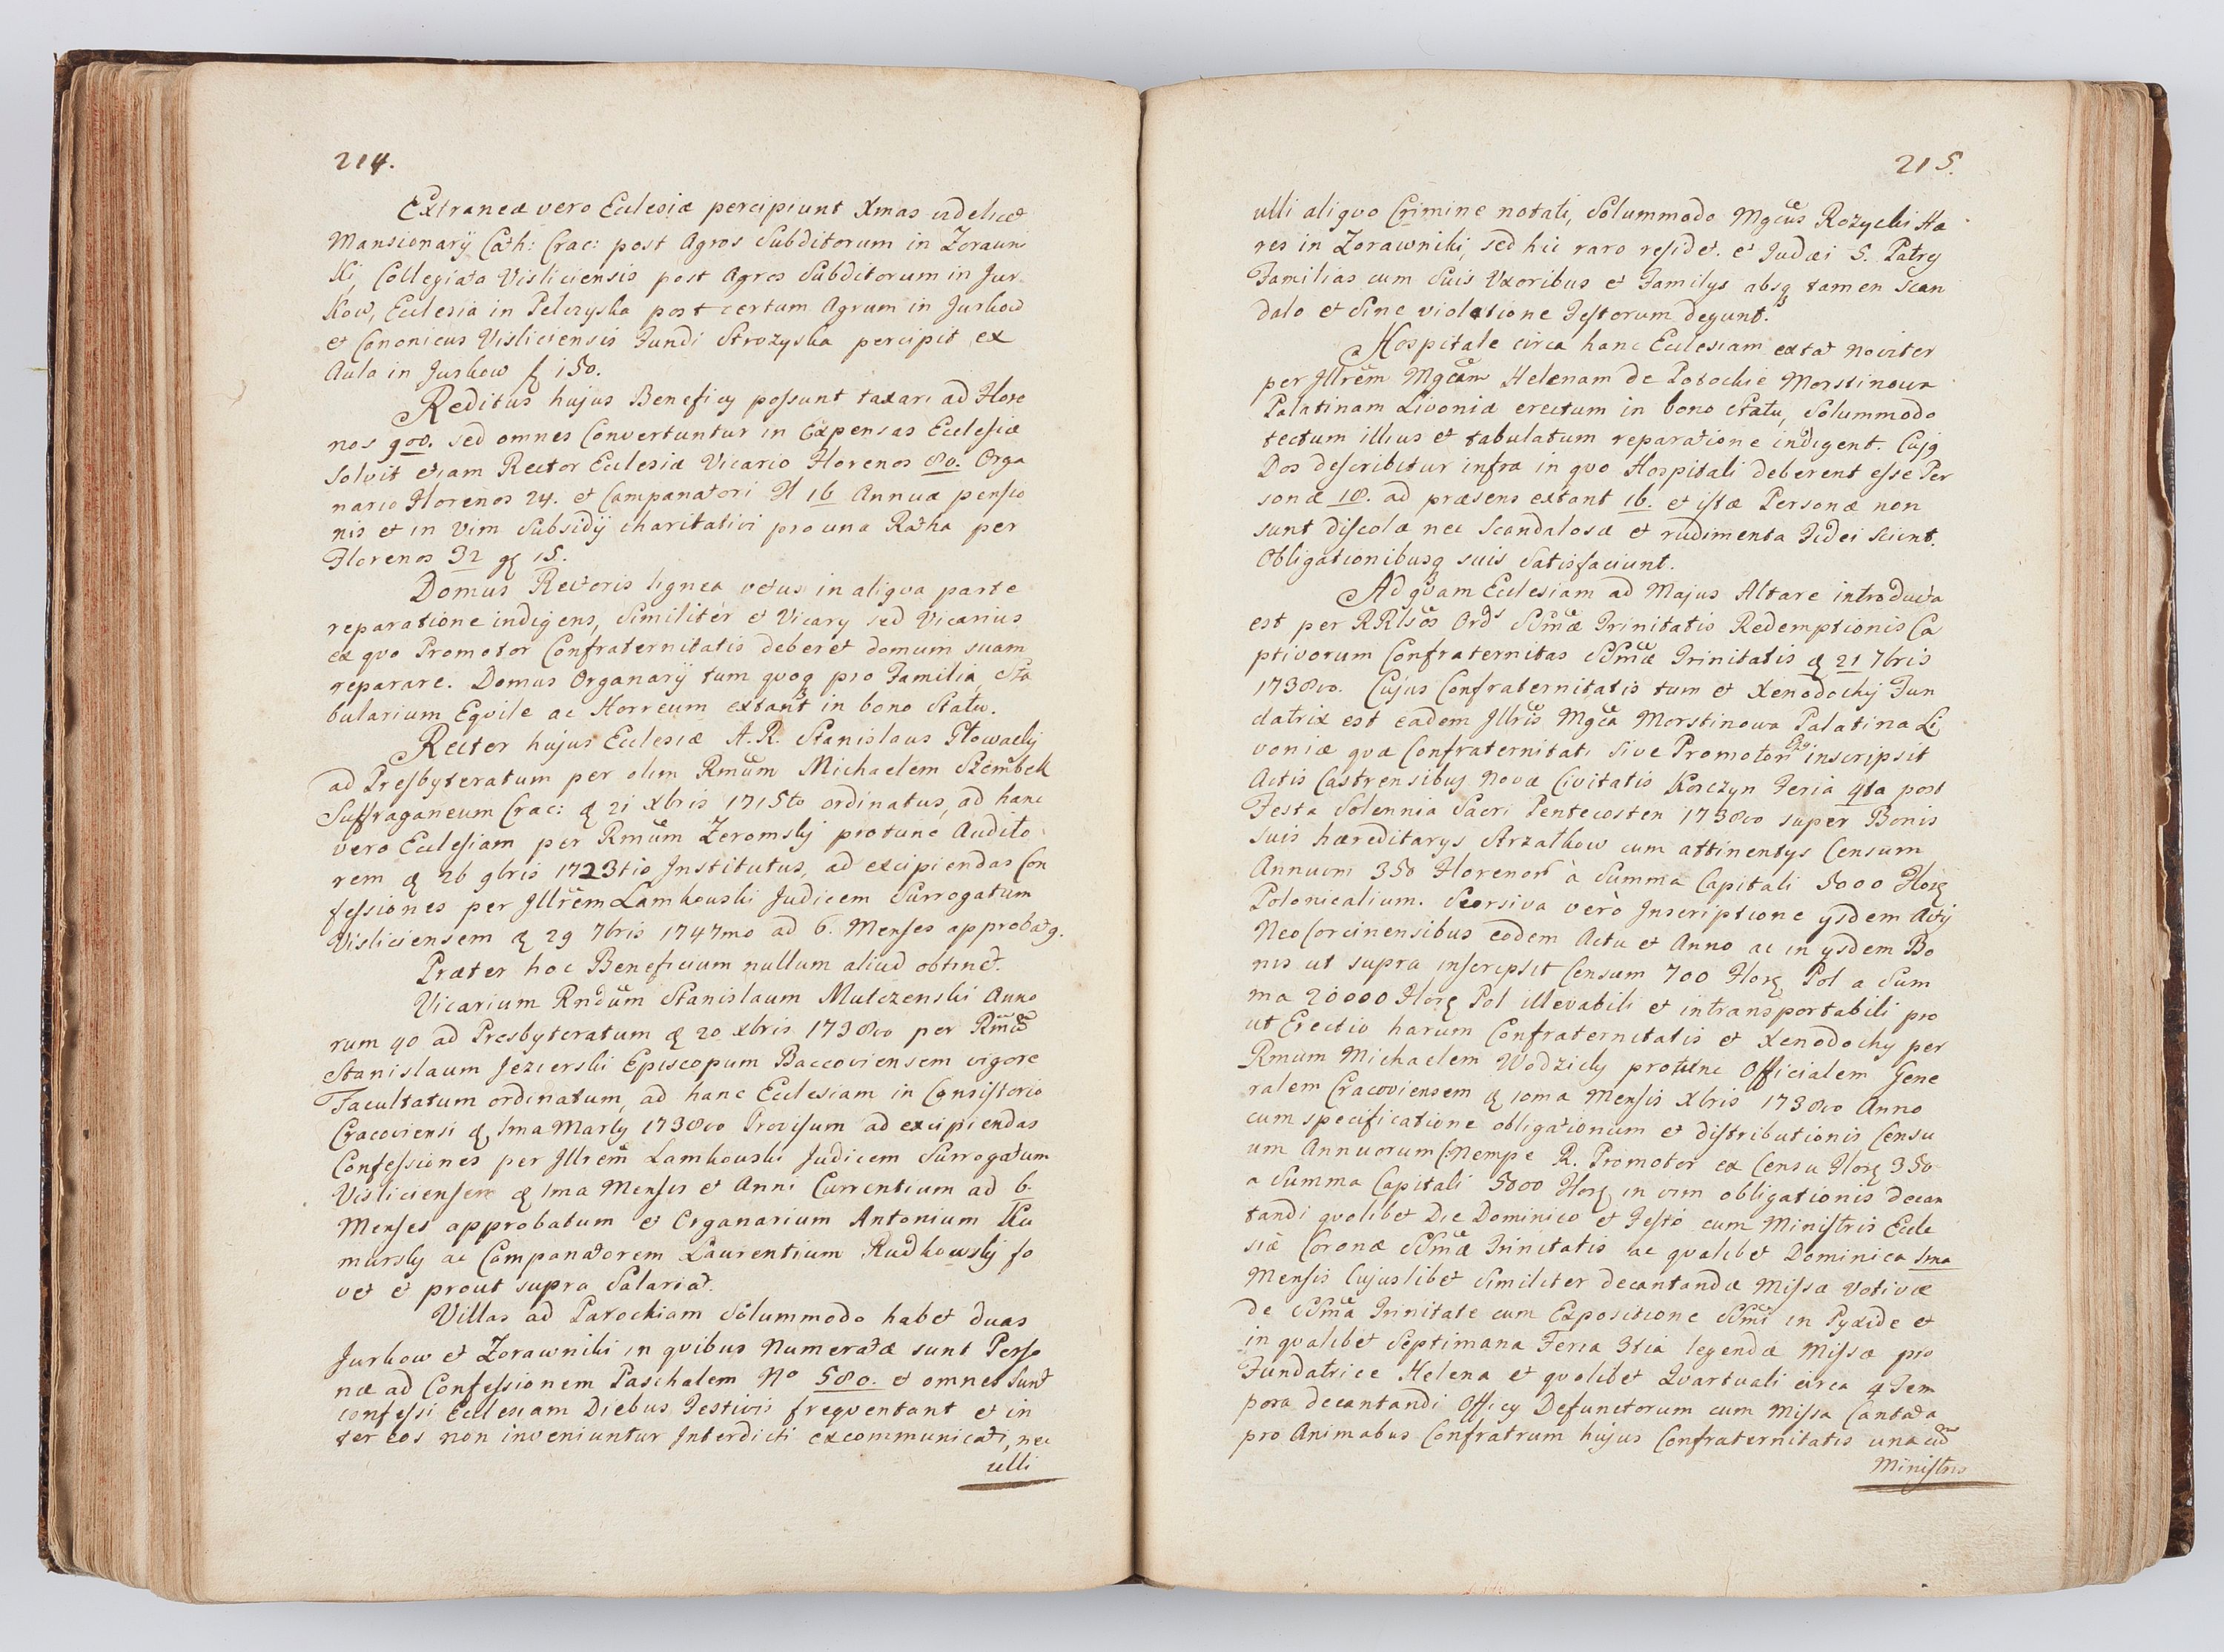 214.
Extraneæ vero Ecclesiæ percipiunt Xmas videlicet
Mansionarij Cath: Crac: post Agros Subditorum in Zorawni
ki, Collegiata Visliciensis post Agros Subditorum in Jur
kow, Ecclesia in Pelczyska post certum Agrum in Jurkow
et Canonicus Visliciensis Fundi Strozyska percipit ex
Aula in Jurkow f 150.
Reditus hujus Beneficij possunt taxari ad Flore
nos 900. sed omnes Convertuntur in Expensas Ecclesiæ
solvit etiam Rector Ecclesiæ Vicario Florenos 80. Orga
nario Florenos 24. et Campanatori fl 16 Annuæ pensio
nis et in Vim Subsidij charitativi pro una Ratha per
Florenos 32 gr 15.
Domus Rectoris lignea vetus in aliqua parte
reparatione indigens, Similitèr et Vicarij sed Vicarius
ex quo Promotor Confraternitatis deberet domum suam
reparare. Domus Organarij tum quoq pro Familia, Sta
bularium Equile ac Horreum extant in bono Statu.
Rector hujus Ecclesiæ A. R. Stanislaus Głowacki
ad Presbyteratum per olim Rmum Michaelem Szembek
Suffraganeum Crac: d 21 Xbris 1715to ordinatus, ad hanc
vero Ecclesiam per Rmum Zeromskj protunc Audito
rem d 26 9bris 1723tio Institutus, ad excipiendas Con
fessiones per Jllrem Lamkowski Judicem Surrogatum
Visliciensem d 29 7bris 1747mo ad 6. Menses approbatg.
Præter hoc Beneficium nullum aliud obtinet.
Vicarium Rndum Stanislaum Mulczenski Anno
rum 40 ad Presbyteratum d 20 xbris 1738vo per Rmum
Stanislaum Jezierski Episcopum Baccoviensem vigore
Facultatum ordinatum, ad hanc Ecclesiam in Consistorio
Cracoviensi d, 1ma Martij 1738vo Provisum ad excipiendas
Confessiones per Jllrem Lamkowski Judicem Surrogatum
Visliciensem d 1ma Mensis et Anni Currentium ad 6.
Menses approbatum et Organarium Antonium Ko
morskj ac Campanatorem Laurentium Rudkowskj fo
vet et prout supra Salariat.
Villas ad Parochiam Solummodo habet duas
Jurkow et Zorawniki in quibus Numeratæ sunt Perso
næ ad Confessionem Paschalem No 580. et omnes Sunt
confessi Ecclesiam Diebus Festivis frequentant et in
ter eos non inveniuntur Interdicti excommunicati, nec
ulli
215.
ulli aliquo Crimine notati, Solummodo Mgcus Rozycki Hæ
res in Zorawniki, sed hic raro residet. et Judæi 5. Patres
Familias cum Suis Uxoribus et Familijs absq tamen Scan
dalo et Sine violatione Festorum degunt.
Hospitale circa hanc Ecclesiam extat noviter
per Jllrem Mgcam Helenam de Potockie Morstinowa
Palatinam Livoniæ erectum in bono Statu, Solummodo
tectum illius et tabulatum reparatione indigent. Cujg
Dos describitur infra in quo Hospitali deberent esse Per
sonæ 18. ad præsens extant 16. et istæ Personæ non
sunt discolæ nec Scandalosæ et rudimenta Fidei sciunt.
Obligationibusq suis Satisfaciunt.
Ad quam Ecclesiam ad Majus Altare introducta
est per RR Ord SSmæ Trinitatis Redemptionis Ca
ptivorum Confraternitas SSmæ Trinitatis d 21 7bris
1738vo. Cujus Confraternitatis tum et Xenodochij Fun
datrix est eadem Jllris Mgca Morstinowa Palatina Li
voniæ quæ Confraternitati Sive Promotori inscripsit
Actis Castrensibus Novæ Civitatis Korczyn Feria 4ta post
Festa Solennia Sacri Pentecosten 1738vo super Bonis
suis hæreditarijs Strzałkow cum attinentijs Censum
Annuum 350 Florenor à Summa Capitali 5000 Flor
Polonicalium. Seorsiva verò Inscriptione ijsdem Actis
NeoCorcinensibus eodem Actu et Anno ac in ijsdem Bo
nis ut supra inscripsit Censum 700 Flor Pol a Sum
ma 20000 Flor Pol illevabili et intransportabili pro
ut Erectio harum Confraternitatis et Xenodochij per
Rmum Michaelem Wodzicky protunc Officialem Gene
ralem Cracoviensem d 10ma Mensis Xbris 1738vo Anno
cum specificatione obligationum et distributionis Censu
um Annuorum (:Nempe R. Promotor ex Censu Flor 350
a Summa Capitali 5000 Flor in vim obligationis decan
tandi quolibet Die Dominico et Festo cum Ministris Eccle
siæ Coronæ SSmæ Trinitatis ac qualibet Dominica 1ma
Mensis Cujuslibet Similiter decantandæ Missæ Votivæ
de SSma Trinitate cum Expositione SSmi in Pyxide et
in qualibet Septimana Feria 3tia legendæ Missæ pro
Fundatrice Helena et quolibet Quartuali circa 4 Tem
pora decantandi Officij Defunctorum cum Missa Cantata
pro Animabus Confratrum hujus Confraternitatis una cum
Ministris